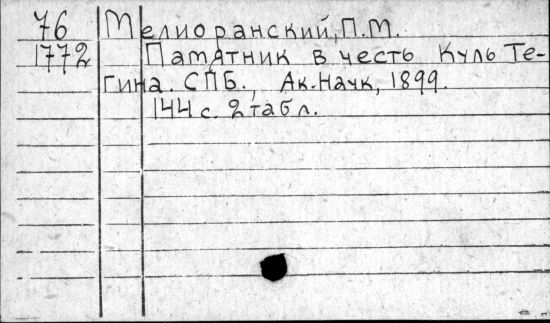 76 Мелиоранский, П.М.
1772 Памятник в честь Куль Те-
гина. СПБ., Ак. Наук, 1899.
144 с. 2 табл.